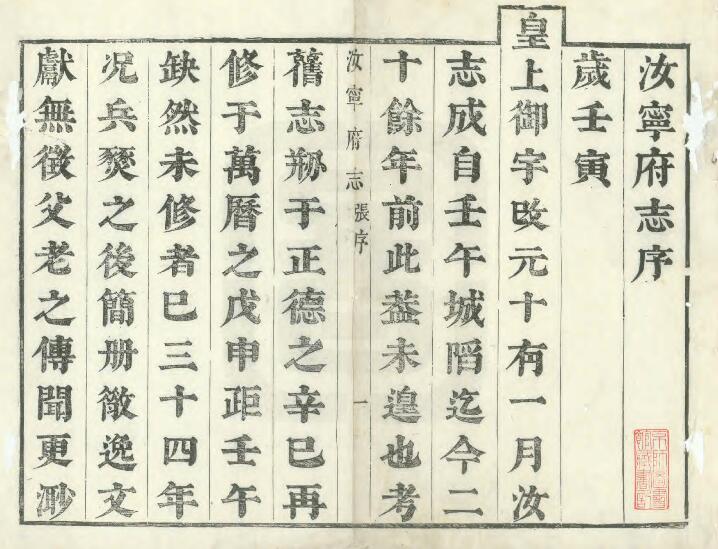 汝寧府志序
歲壬寅
皇上御宇改元十有一月汝
志成自壬午城陷迄今二
十餘年前此葢未遑也考
汝寧府志 張序 一
舊志刱于正德之辛巳再
修于萬曆之戊申距壬午
缺然未修者已三十四年
況兵燹之後簡册散逸文
獻無徵父老之傳聞更渺